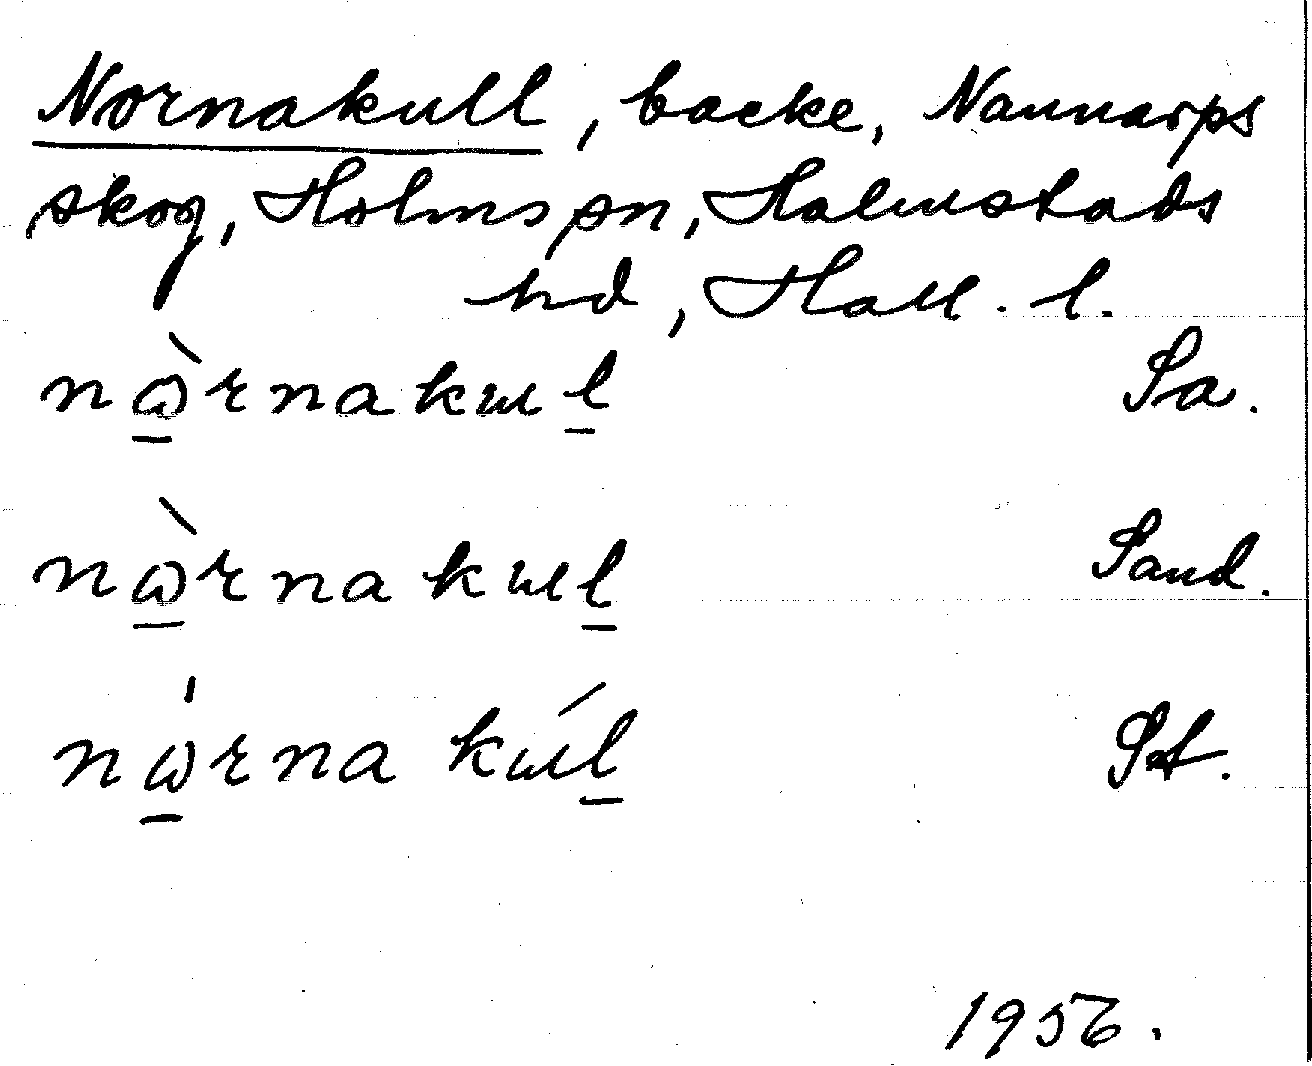 Nornakull, backe, Nannarps
skog, Holms sn, Halmstads
hd, Hall. l.
nὼ̲rnakɯl̲ Sa.
nὼ̲rnakɯl̲ Sand.
nω̲̍rna kɯ́l̲ St.
1956.